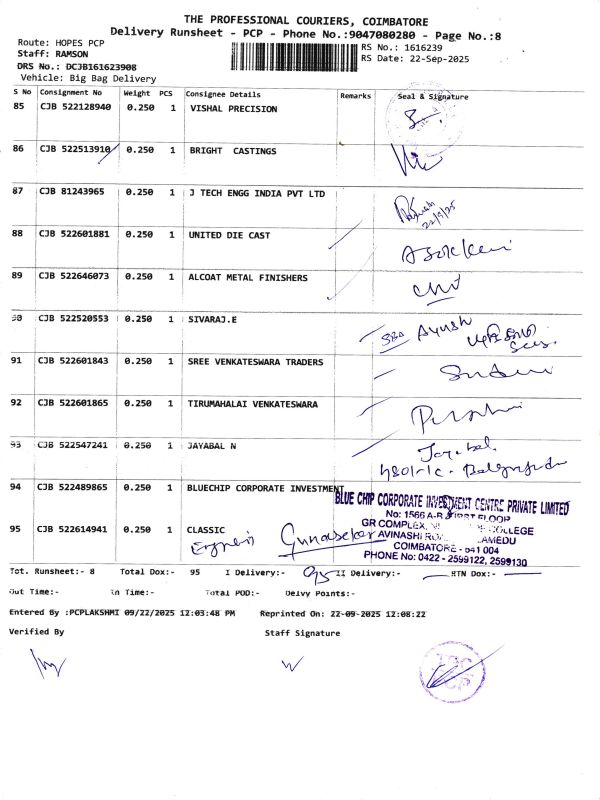 THE PROFESSIONAL COURIERS, COIMBATORE
Delivery Runsheet - PCP - Phone No.:9047080280 - Page No.:8
Route: HOPES PCP
Staff: RAMSON
DRS No.: DCJB161623908
Vehicle: Big Bag Delivery
RS No.: 1616239
RS Date: 22-Sep-2025
S No Consignment No Weight PCS Consignee Details Remarks Seal & Signature
85 CJB 522128940 0.250 1 VISHAL PRECISION
86 CJB 522513910 0.250 1 BRIGHT CASTINGS
87 CJB 81243965 0.250 1 J TECH ENGG INDIA PVT LTD
22/9/25
88 CJB 522601881 0.250 1 UNITED DIE CAST
89 CJB 522646073 0.250 1 ALCOAT METAL FINISHERS
90 CJB 522520553 0.250 1 SIVARAJ.E
Ayush
91 CJB 522601843 0.250 1 SREE VENKATESWARA TRADERS
92 CJB 522601865 0.250 1 TIRUMAHALAI VENKATESWARA
93 CJB 522547241 0.250 1 JAYABAL N
Jayabal
94 CJB 522489865 0.250 1 BLUECHIP CORPORATE INVESTMENT
BLUE CHIP CORPORATE INVESTMENT CENTRE PRIVATE LIMITED
No: 1566 FIRST FLOOR
GR COMPLEX, COLLEGE
AVINASHI
COIMBATORE - 641 004
PHONE No: 0422 - 2599122, 2599130
95 CJB 522614941 0.250 1 CLASSIC
Gunasekar
Tot. Runsheet:- 8 Total Dox:- 95 I Delivery:- 95 II Delivery:- RTN Dox:-
Out Time:- In Time:- Total POD:- Delvy Points:-
Entered By :PCPLAKSHMI 09/22/2025 12:03:48 PM Reprinted On: 22-09-2025 12:08:22
Verified By Staff Signature